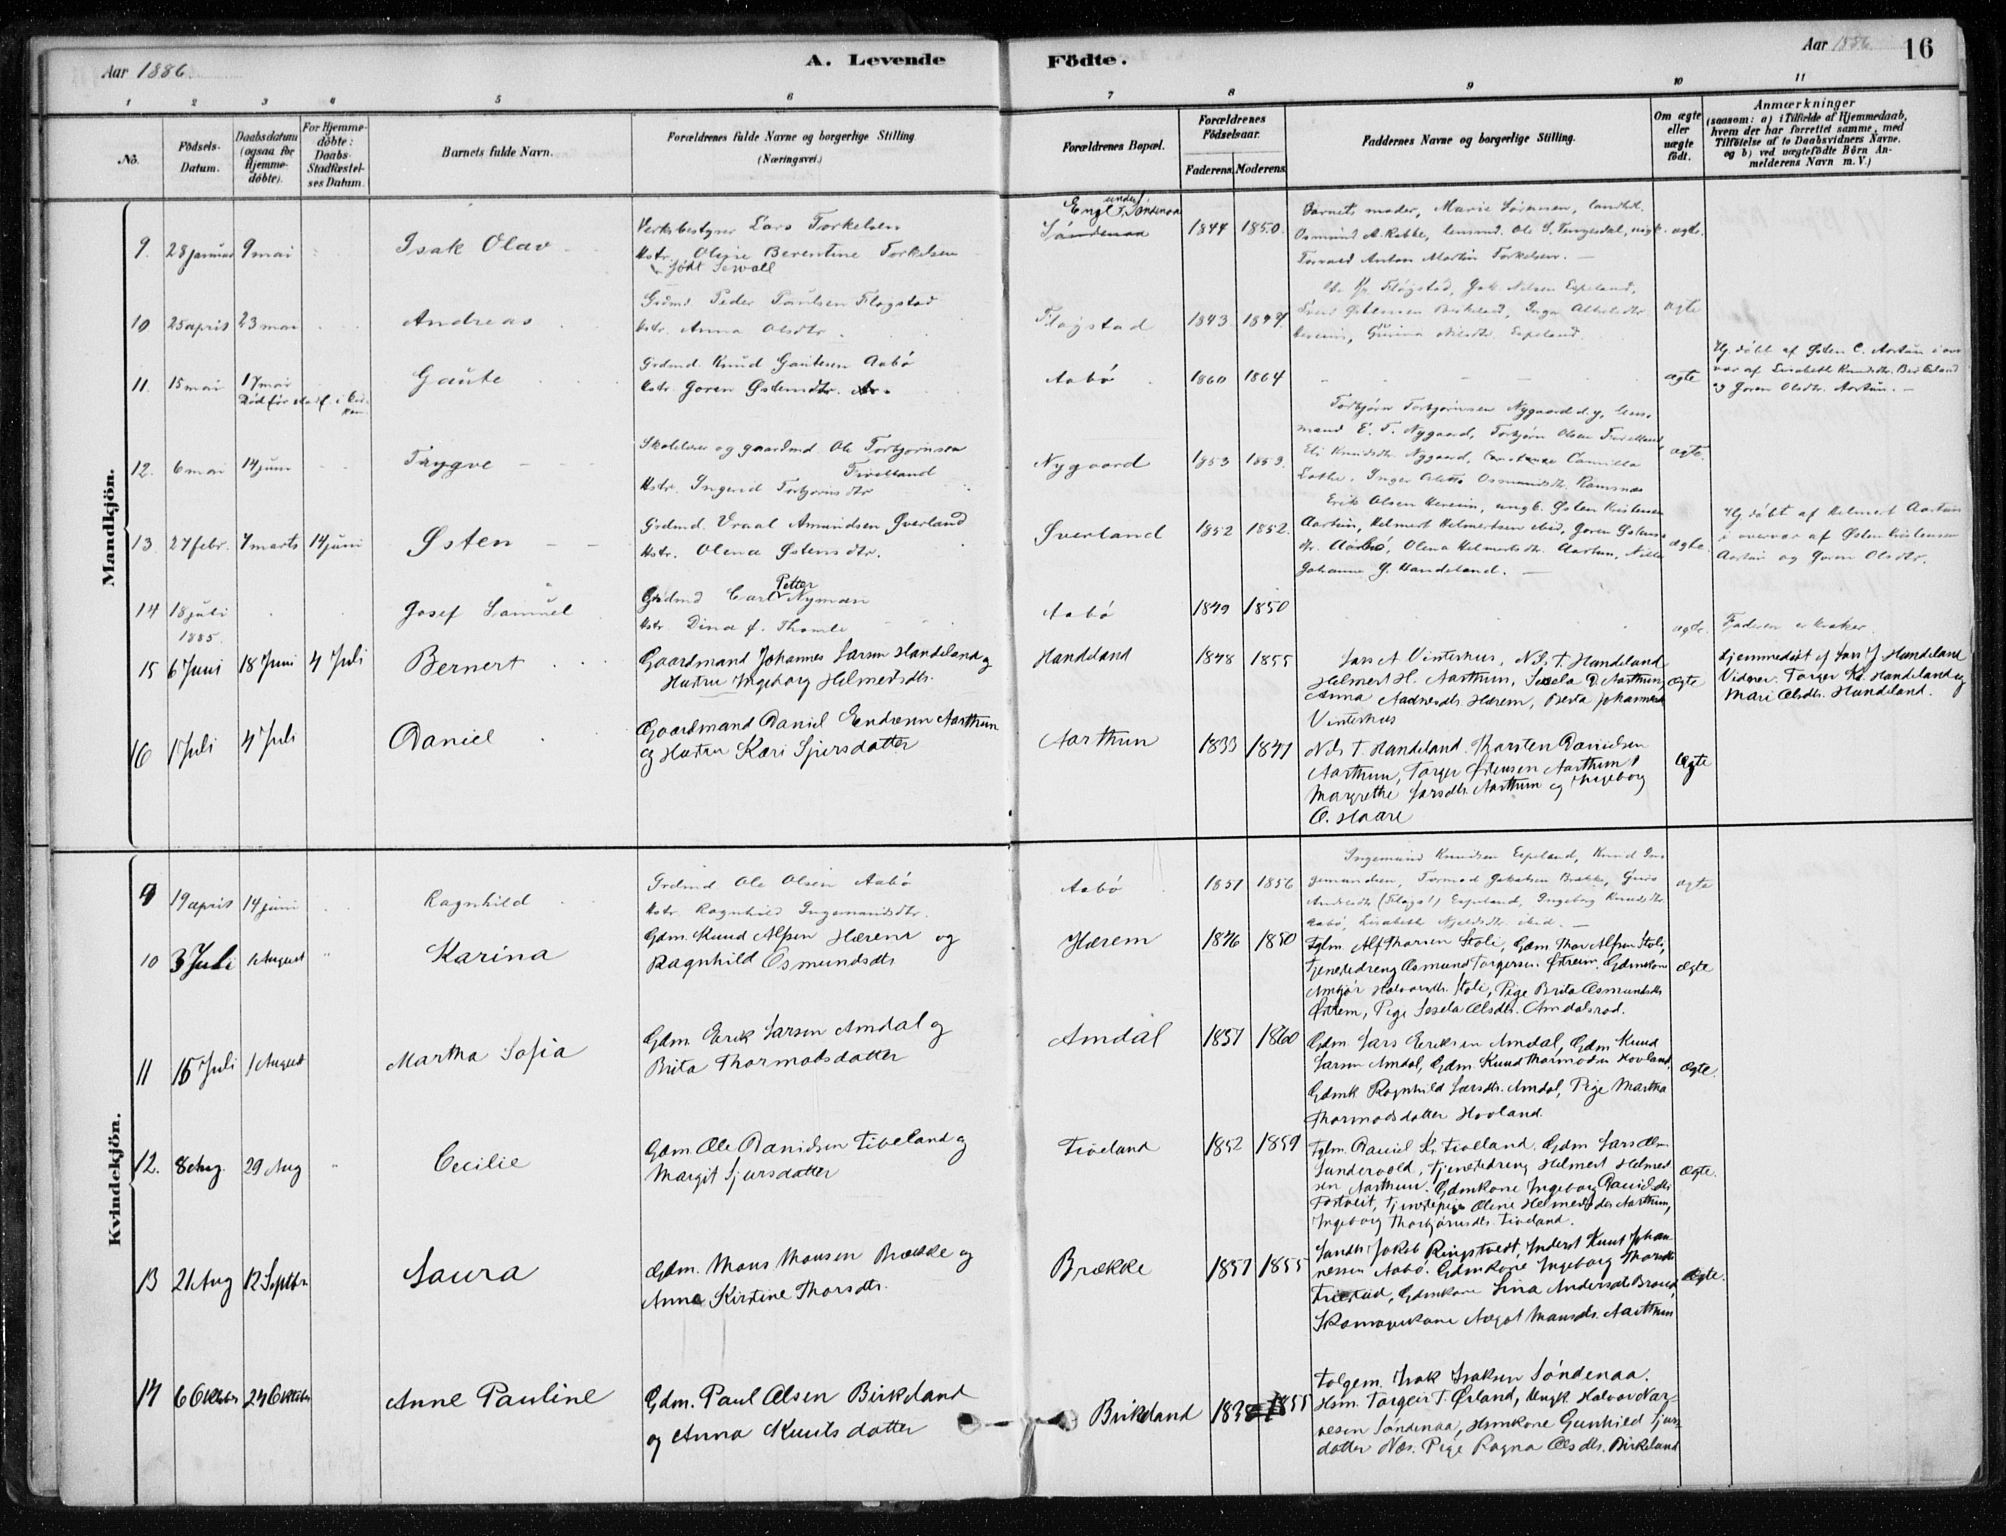 Aar 1886.
A. Levende
Födte.
Aar 1886
16
1 2 3 4 5 6 7 8 9 10 11
No.
Födsels-
Datum.
Daabsdatum
(ogsaa for
Hjemme-
döbte).
For Hjemme-
döbte:
Daabs-
Stadfæstel-
ses Datum.
Barnets fulde Navn.
Forældrenes fulde Navne og borgerlige Stilling.
(Næringsvei.)
Forældrenes Bopæl.
Forældrenes
Födselsaar.
Faderens. Moderens.
Faddernes Navne og borgerlige Stilling.
Om ægte
eller
uægte
födt.
Anmærkninger
(saasom: a) i Tilfælde af Hjemmedaab,
hvem der har forrettet samme, med
Tilföielse af to Daabsvidners Navne,
og b) ved uægtefödte Börn An-
melderens Navn m. V.)
Mandkjön.
9. 28 januar 9 mai Isak Olav
Verksbestyrer Lars Torkelsen
Hstr. Oline Berentine Torkelsen
født Sewall
Engl under Söndenaa
Söndenaa
1844 1850.
Barnets moder, Marie Sörensen, landhdl.
Osmund A. Rabbe, lensmd. Ole S. Tungesdal, ungk.
Torvald Anton Martin Torkelsen.
ægte.
10 25 april 23 mai Andreas
Grdmd. Peder Paulsen Flogstad
Hstr. Anna Olsdtr.
Fløgstad 1843 1847.
ægte
11. 15 mai 17 mai Gaute
Død før stadf. i kir-
ken
Grdmd. Knud Gautesen Aabö
Hstr. Goren Østensdtr.
Aabö 1860 1864
ægte
Hj. döbt af Østen C. Aartun i over
vær af Lisabeth Knudsdtr. Birkeland
og Goren Olsdtr. Aartun.
12. 6 mai 14 juni Trygve
Skolelærer og gaardmd. Ole Torbjornsen
Tveitland
Hstr. Ingerid Torbjornsdtr
Nygaard 1853 1853.
Torbjørn Torbjørnsen Nygaard d.y., lens-
mand E. T. Nygaard, Torbjørn Olsen
Eli Knudsdtr. Nygaard, Constance Camilla
Lothe, Inger Osmundsdtr. Ramsnæs
ægte.
13. 27 febr. 7 marts 14 juni Østen
Grdmd. Vraal Amundsen Øverland
Hstr. Olena Østensdtr.
Øverland 1852 1852.
Erik Olsen Hereim, ungk. Østen Kristensen
Aartun, Helmert Helmertsen ibid., Goren Østens-
dtr. Aabö, Olena Helmertsdtr. Aartun, Nille
Johanne G. Handeland.
ægte
Hj. döbt af Helmert Aartun
i overvær af Østen Kristensen
Aartun og Goren Olsdtr.
14 18 juli
1885.
Josef Samuel
Grdmd Carl Petter Nyman
Hstr. Dina f. Thomle
Aabö 1849 1850
ægte.
Faderen er kvæker.
15 6 Juni 18 Juni 4 Juli Bernert
Gaardmand Johannes Larsen Handeland og
Hustru Ingeborg Helmersdtr.
Handeland 1848 1855
Lars A Vinterhus, Nils T. Handeland
Helmert H. Aarthun, Sesela D. Aarthun,
Anna Aadnesdtr Hærem, Berta Johannesd
Vinterhus
Ægte
Hjemmedöbt af Lars J. Handeland
Vidner. Torger K. Handeland og
Mari Olsdtr. Handeland.
16 1 Juli 4 Juli Daniel
Gaardmand Daniel Endresen Aarthun
og Hustru Kari Sjursdatter
Aarthun 1833 1841
Nils T. Handeland. Karsten Danielsen
Aarthun, Torger Østensen Aarthun
Margrethe Larsdtr. Aarthun og Ingeborg
O. Haare
Ægte
Kvindekjön.
9 19 april 14 juni Ragnhild
Grdmd Ole Olsen Aabö
Hstr. Ragnhild Ingemundsdtr.
Aabö 1851 1856
Ingemund Knudsen Espeland, Knud In-
gemundsen, Tormod Jakobsen Brække, Guro
Espeland, Ingeborg Knudsdtr.
Aabö, Lisabeth
ægte
10 3 Juli 1 August Karina
Gdm. Knud Alfsen Hæreim og
Ragnhild Osmundsdtr
Hærem 1846 1850
Fglm. Alf Thorsen Stole, Gdm Thor Alfsen Stole,
Tjenestedreng Osmund Torgersen Østrem. Gdmkone
Amgjør Halvorsdtr. Stole, Pige Brita Osmundsdtr
Østrem, Pige Sesela Olsdtr. Amdalsrod.
Ægte
11 15 Juli 1 August Martha Sofia
Gdm. Erik Larsen Amdal og
Brita Thormodsdatter
Amdal 1857 1860
Gdm. Lars Eriksen Amdal, Gdm Knud
Larsen Amdal, Gdm. Knud Thormodsen Hovland,
Gdmk Ragnhild Larsdtr. Amdal, Pige Martha
Thormodsdatter Hovland.
Ægte.
12. 8 Aug. 29 Aug Cecilie
Gdm Ole Danielsen Tiveland og
Margit Sjursdatter
Tiveland 1852 1859
Fglm. Daniel K. Tiveland. Gdm Lars Olsen
Sundervold, Tjenestedreng Helmert Helmert-
sen Aarthun. Gdmkone Ingeborg Danielsdtr
Fostveit, Tjenestepige Oline Helmersdtr Aarthun,
Ingeborg Thorbjørnsdtr. Tiveland.
Ægte.
13 21 Aug 12 Septbr Laura
Gdm. Mons Monsen Brække og
Anne Kirstine Thorsdtr.
Brække 1857 1855
Landh. Jakob Ringstvedt, Inderst Knut Johan-
nessen Aabö. Gdmkone Ingeborg Thorsdtr
Gdmkone Sina Andersdtr
Skomagerkone Aagot Monsdtr. Aarthun
Ægte.
14 6 Oktober 24 Oktober Anne Pauline
Gdm. Paul Olsen Birkeland
og Anna Knutsdatter
Birkeland 1838 1855
Folgem. Isak Isaksen Söndenaa.
Hsm. Torgeir T. Ørland, Ungk. Halvor Nar-
vesen Söndenaa, Hsmkone Gunhild Sjurs-
datter Næs. Pige Ragna Olsdtr. Birkeland